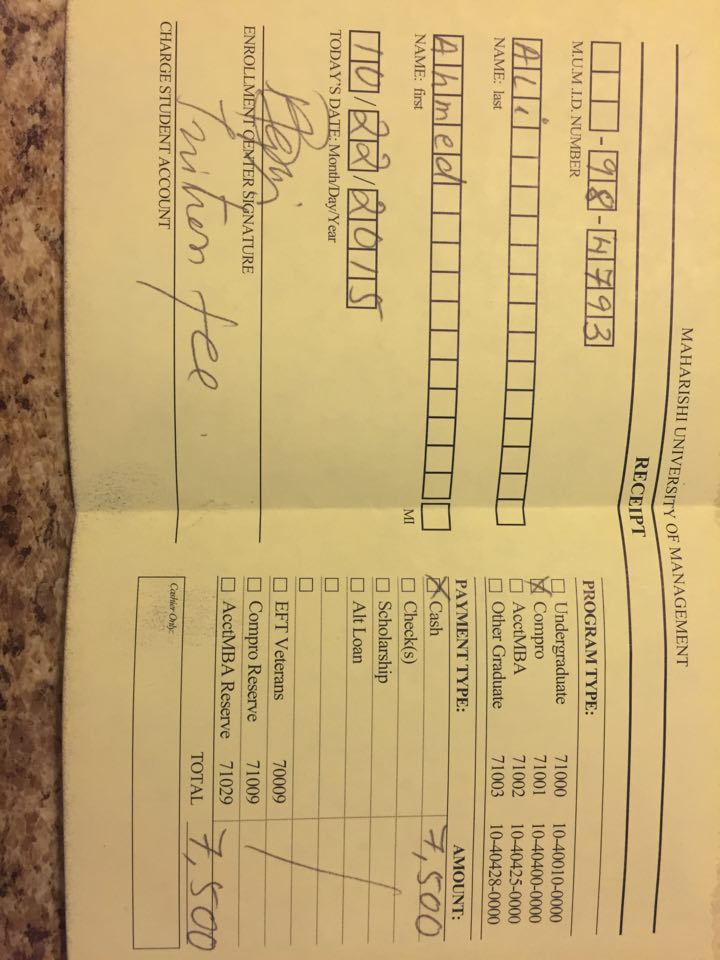 MAHARISHI UNIVERSITY OF MANAGEMENT
RECEIPT
-98-4793
M.U.M .I.D. NUMBER
ALi
NAME: last
Ahmed
NAME: first MI
10/22/2015
TODAY'S DATE: Month/Day/Year
ENROLLMENT CENTER SIGNATURE
Tuition fee
CHARGE STUDENT ACCOUNT
PROGRAM TYPE:
☐ Undergraduate 71000 10-40010-0000
☒ Compro 71001 10-40400-0000
☐ AcctMBA 71002 10-40425-0000
☐ Other Graduate 71003 10-40428-0000
PAYMENT TYPE: AMOUNT:
☒ Cash 7,500
☐ Check(s)
☐ Scholarship
☐ Alt Loan
☐
☐
☐ EFT Veterans 70009
☐ Compro Reserve 71009
☐ AcctMBA Reserve 71029
TOTAL 7,500
Cashier Only: